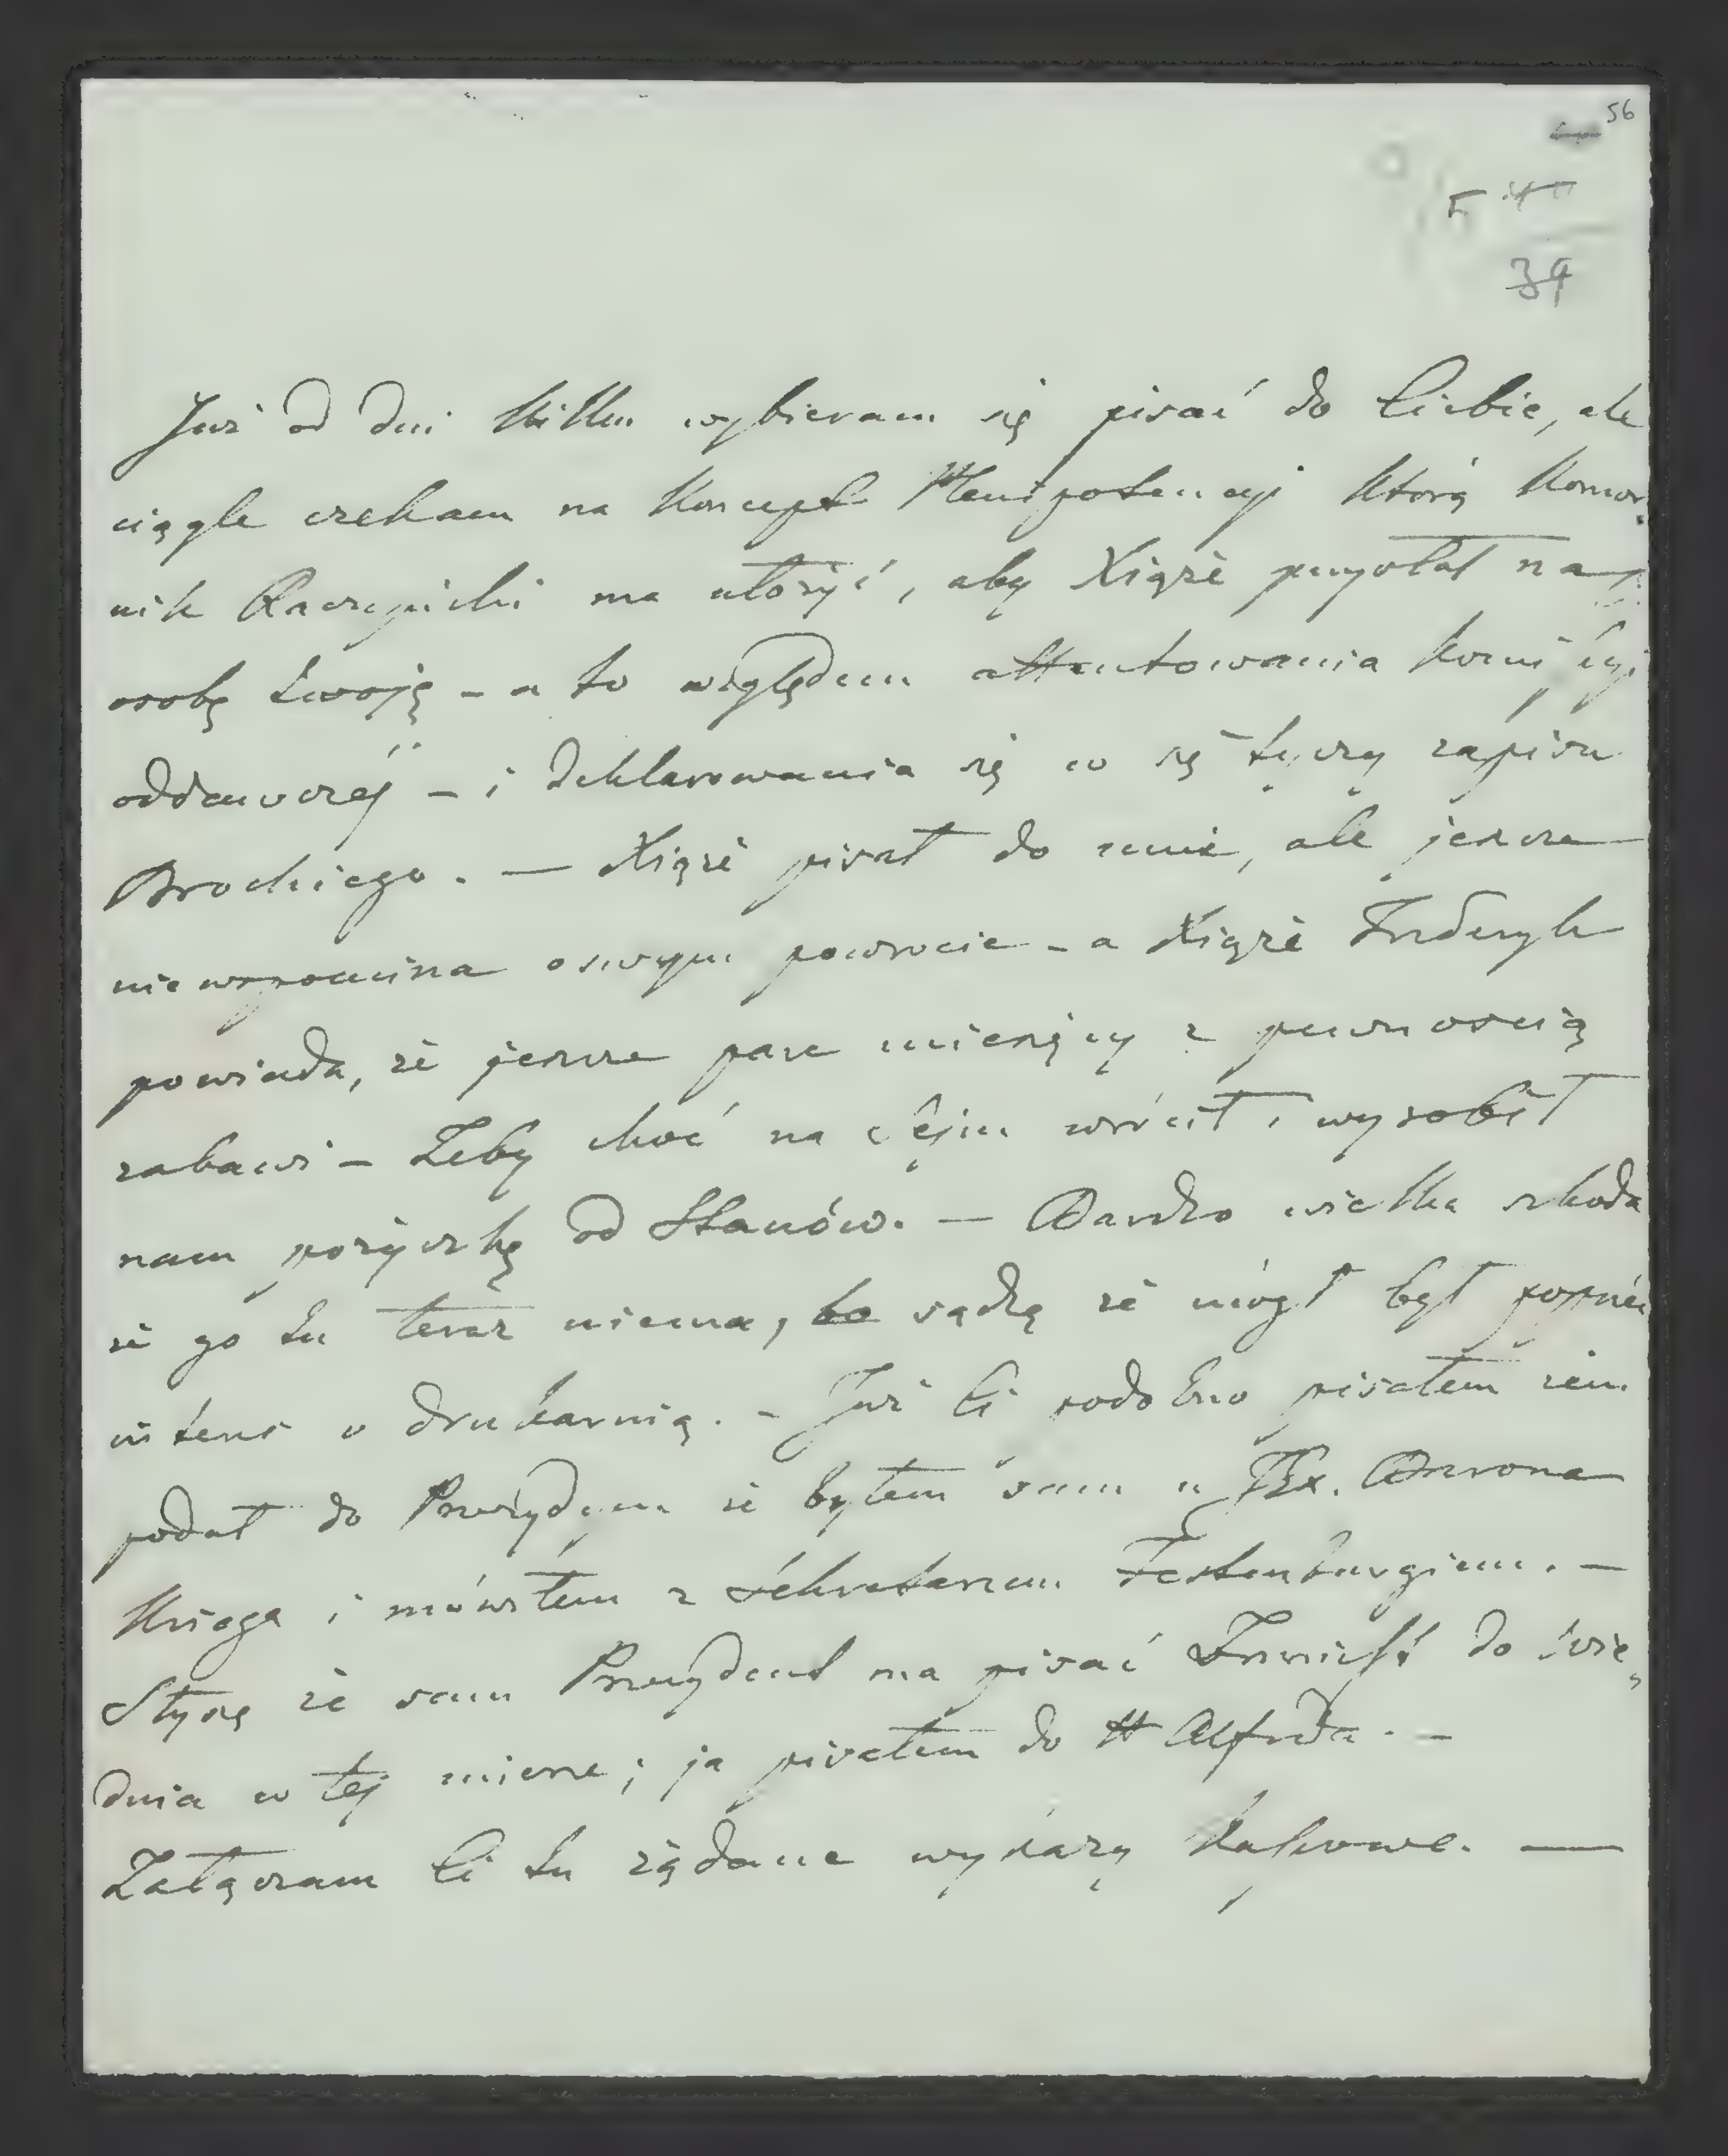 56
39
Już od dni kilku wybieram się pisać do Ciebie, ale
ciągle czekam na koncept Plenipotencyi którą Komor
nik Raczyński ma ułożyć, aby Xiąże przysłał na
osobę twoję - a to względem attentowania komisyi
oddawczéj - i deklarowania się co się tyczy zapisu
Brockiego. — Xiąże pisał do mnie, ale jeszcze
nie wspomina o swym powrocie - a Xiąże Frederyk
powiada, że jeszcze parę miesięcy z pewnością
zabawi - Żeby choć na Sejm wrócił i wyrobił
nam pożyczkę od Stanów. — Bardzo wielka szkoda
że go tu teraz niema, bo sądzę że mógł był poprzeć
interes o drukarnią. - Już Ci podobno pisałem żem
podał do Prezydyum że byłem sam u Bar. Barona
Kriega i mówiłem z Sekretarzem Festenburgiem. —
Słyszę że sam Prezydent ma pisać do Wie„
dnia w tej mierze; ja pisałem do H Alfreda. -
Załączam Ci tu żądane wykazy kassowe. —